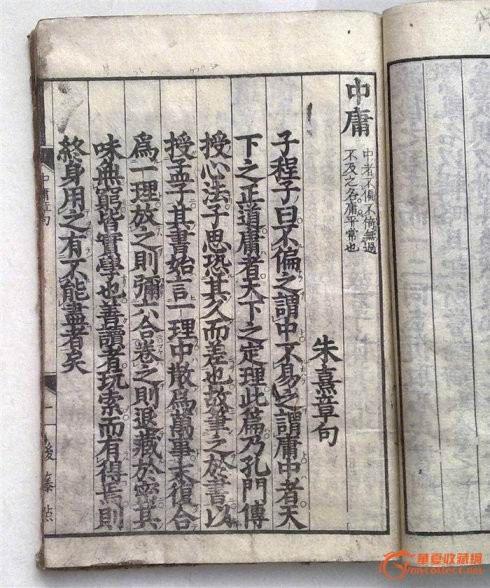 中庸
中者不偏不倚無過
不及之名庸平常也
朱熹章句
子程子曰不偏之謂中不易之謂庸中者天
下之正道庸者天下之定理此篇乃孔門傳
授心法子思恐其久而差也故筆之於書以
授孟子其書始言一理中散爲萬事末復合
爲一理放之則彌六合卷之則退藏於密其
味無窮皆實學也善讀者玩索而有得焉則
終身用之有不能盡者矣
中庸章句
一
後藤點
華夏收藏網